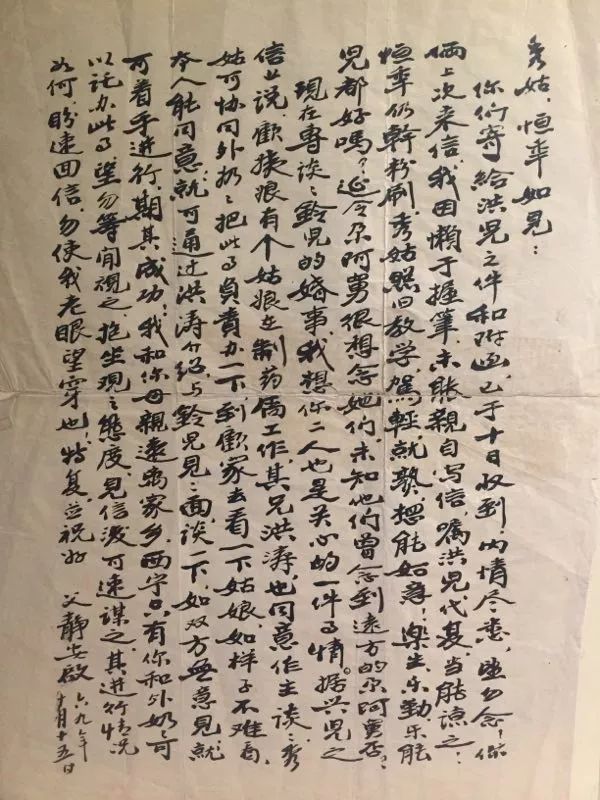 秀姑、恒年如见：
你们寄给洪儿之件和附函，已于十日收到，内情尽悉，望勿念！你
俩上次来信，我因懒于握笔，未能亲自写信，嘱洪儿代复，当能谅之！
恒年仍幹粉刷，秀姑照旧教学，駕輕就熟，想能如意！樂生、乐勤、乐能
兒都好嗎？延令尕阿舅很想念她们，未知他们曾念到遠方的尕阿舅否？
現在專谈谈鈴児的婚事，我想你二人也是关心的一件事情。据兴児之
信上说，歡 娘有个姑娘在制药厰工作，其兄洪涛也同意作主谈谈，秀
姑可协同外奶奶把此事負責办一下，到歡家去看一下姑娘，如樣子不难看，
本人能同意，就可通过洪涛介绍，与鈴児見見面，谈一下，如双方無意見，就
可着手进行，期其成功！我和你母親遠离家乡，西宁只有你和外奶奶可
以託办此事，望勿等闲視之，抱坐观之態度，見信後可速谋之，其进行情况
如何，盼速回信，勿使我老眼望穿也！特复，並祝好
父静 啟 六九年
十月十五日